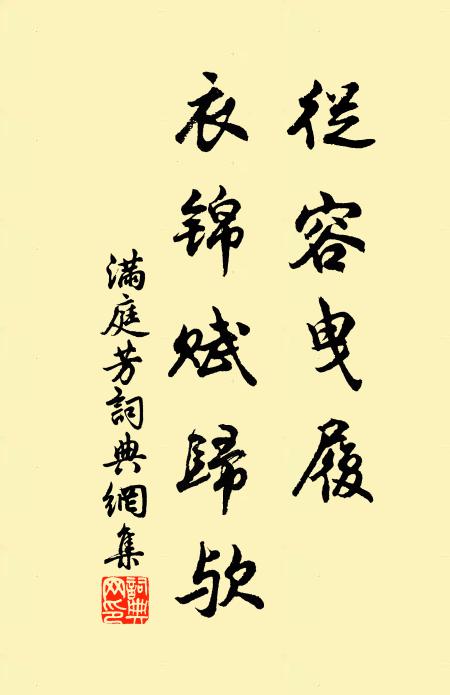 從容曳履
衣锦赋歸欤
滿庭芳詞典網集
詞典网印